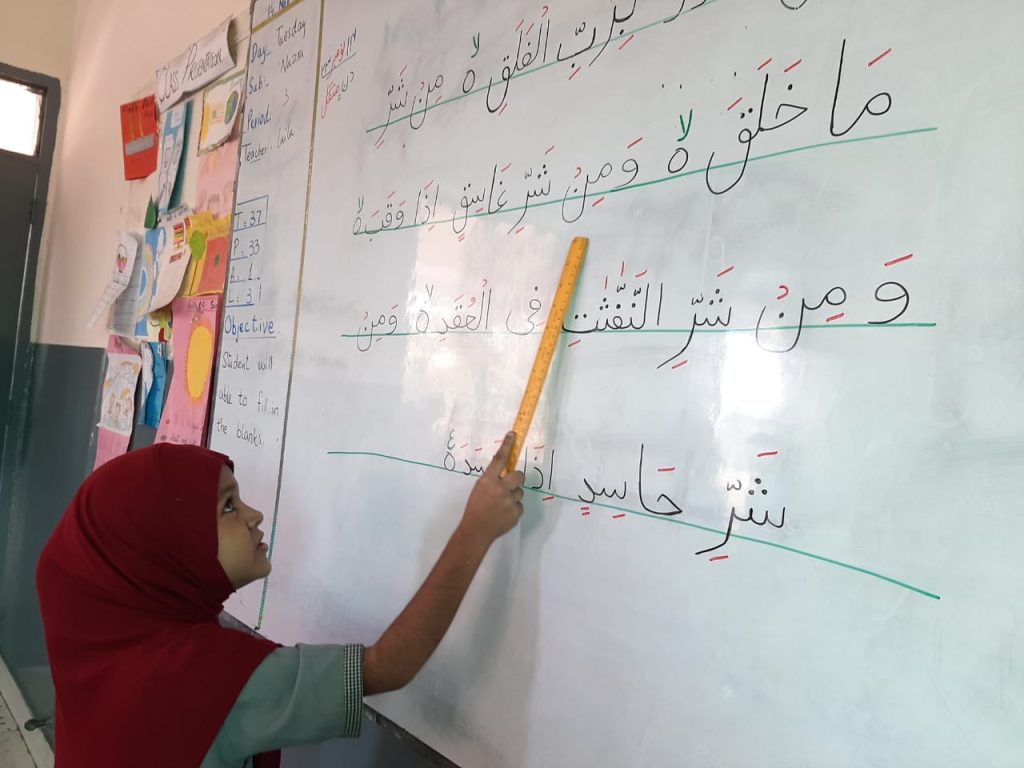 CLASS PRESENTATION
Day: Tuesday
Sub:- Nazra
Period: 3
Teacher: Laila
T: 37
P: 33
A: 1
L: 3
Objective
Student will
able to fill in
the blanks.
بِرَبِّ الْفَلَقِ ۙ مِنْ شَرِّ
مَا خَلَقَ ۙ وَمِنْ شَرِّ غَاسِقٍ اِذَا وَقَبَ ۙ
وَمِنْ شَرِّ النَّفّٰثٰتِ فِى الْعُقَدِ ۙ وَمِنْ
شَرِّ حَاسِدٍ اِذَا